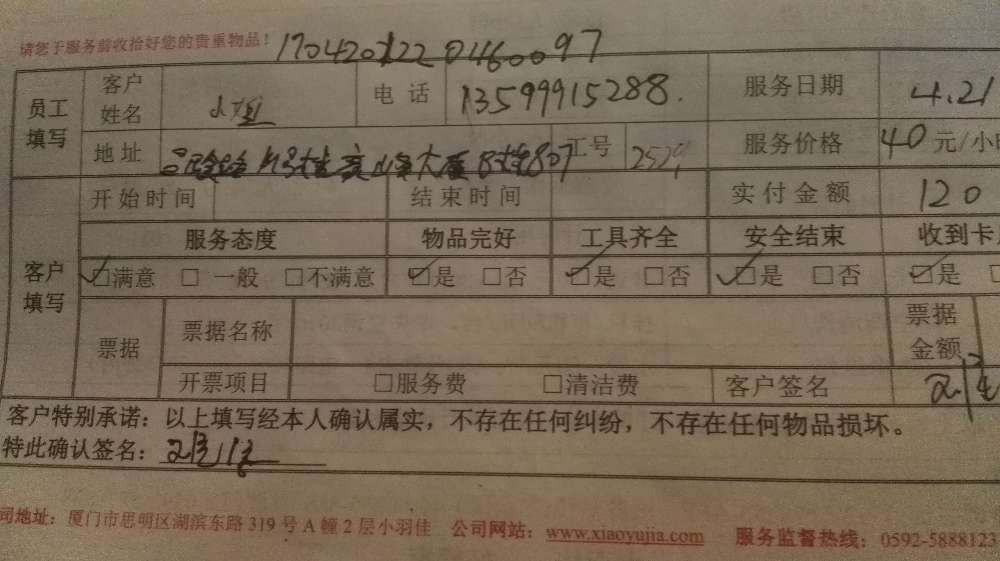 请您于服务前收拾好您的贵重物品! 170420122 0460097
员工填写 客户姓名 电话 13599915288. 服务日期 4.21
地址 大厦B栋807 工号 2529 服务价格 40 元/小时
客户填写 开始时间 结束时间 实付金额 120
服务态度 物品完好 工具齐全 安全结束 收到卡
☑满意 □一般 □不满意 ☑是 □否 ☑是 □否 ☑是 □否 ☑是
票据 票据名称 票据金额
开票项目 □服务费 □清洁费 客户签名
客户特别承诺：以上填写经本人确认属实，不存在任何纠纷，不存在任何物品损坏。
特此确认签名：
司地址：厦门市思明区湖滨东路 319 号 A 幢 2 层小羽佳 公司网站：www.xiaoyujia.com 服务监督热线：0592-5888123